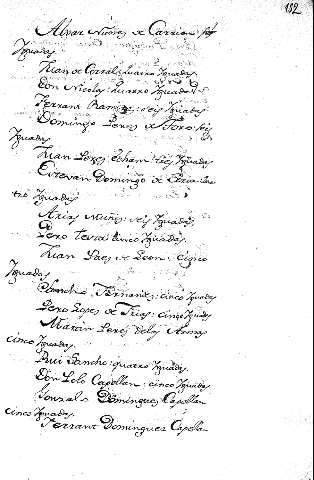 132
Alvar Nuñes de Carrion seis
Yguadas
Juan de Corral: quatro Yguadas
Don Nicolas: quatro Yguadas
Ferrant Ramirez: seis Yguadas
Domingo Peres de Toro: seis
Yguadas
Juan Lopes : tres Yguadas
Estevan Domingo de
tro Yguadas
Arias Nuñes seis Yguadas
Pero cinco Yguadas
Juan Paes de Leon: cinco
Yguadas
Sancho Fernandes: cinco Yguadas
Pero Lopes de Frias: cinco Yguadas
Martin Peres delas Armas
cinco Yguadas.
Rui Sancho: quatro Yguadas
Don Polo Capellan: cinco Yguadas
Gonzalo Domingues Capellan
cinco Yguadas
Ferrant Domingues Capella